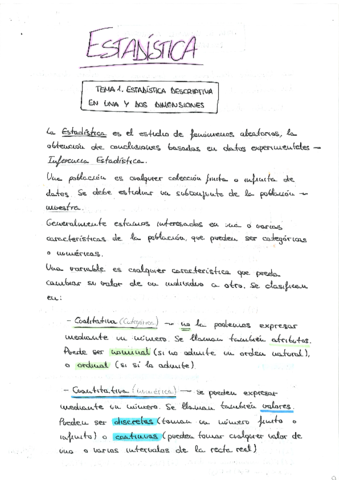 ESTADÍSTICA
TEMA 1. ESTADÍSTICA DESCRIPTIVA
EN UNA Y DOS DIMENSIONES
La Estadística es el estudio de fenómenos aleatorios, la
obtención de conclusiones basadas en datos experimentales –
Inferencia Estadística.
Una población es cualquier colección finita o infinita de
datos. Se debe estudiar un subconjunto de la población –
muestra.
Generalmente estamos interesados en una o varias
características de la población, que pueden ser categóricas
o numéricas.
Una variable es cualquier característica que pueda
cambiar su valor de un individuo a otro. Se clasifican
en:
- Cualitativa (Categórica) – no la podemos expresar
mediante un número. Se llaman también atributos.
Puede ser nominal (si no admite un orden natural),
o ordinal (si sí la admite).
- Cuantitativa (numérica) – se pueden expresar
mediante un número. Se llaman también valores.
Pueden ser discretas (toman un número finito o
infinito) o continuas (pueden tomar cualquier valor de
uno o varios intervalos de la recta real)